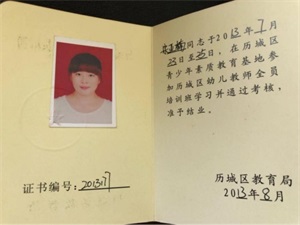 证书编号:201317
同志于2013年7月
23日至25日,在历城区
青少年素质教育基地参
加历城区幼儿教师全员
培训班学习并通过考核,
准予结业。
历城区教育局
2013年8月